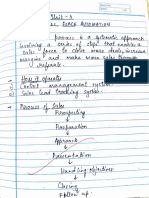 Unit - 3
SALES FORCE AUTOMATION
Sales process is a systematic approach
involving a series of steps that enables a
sales force to close more deals, increase
margins and make more sales through
referrals.
How it operates
Contact management system
Sales lead tracking system.
Process of Sales
Prospecting
Preparation
Approach
Presentation
Handling objectives
Closing
Follow up.